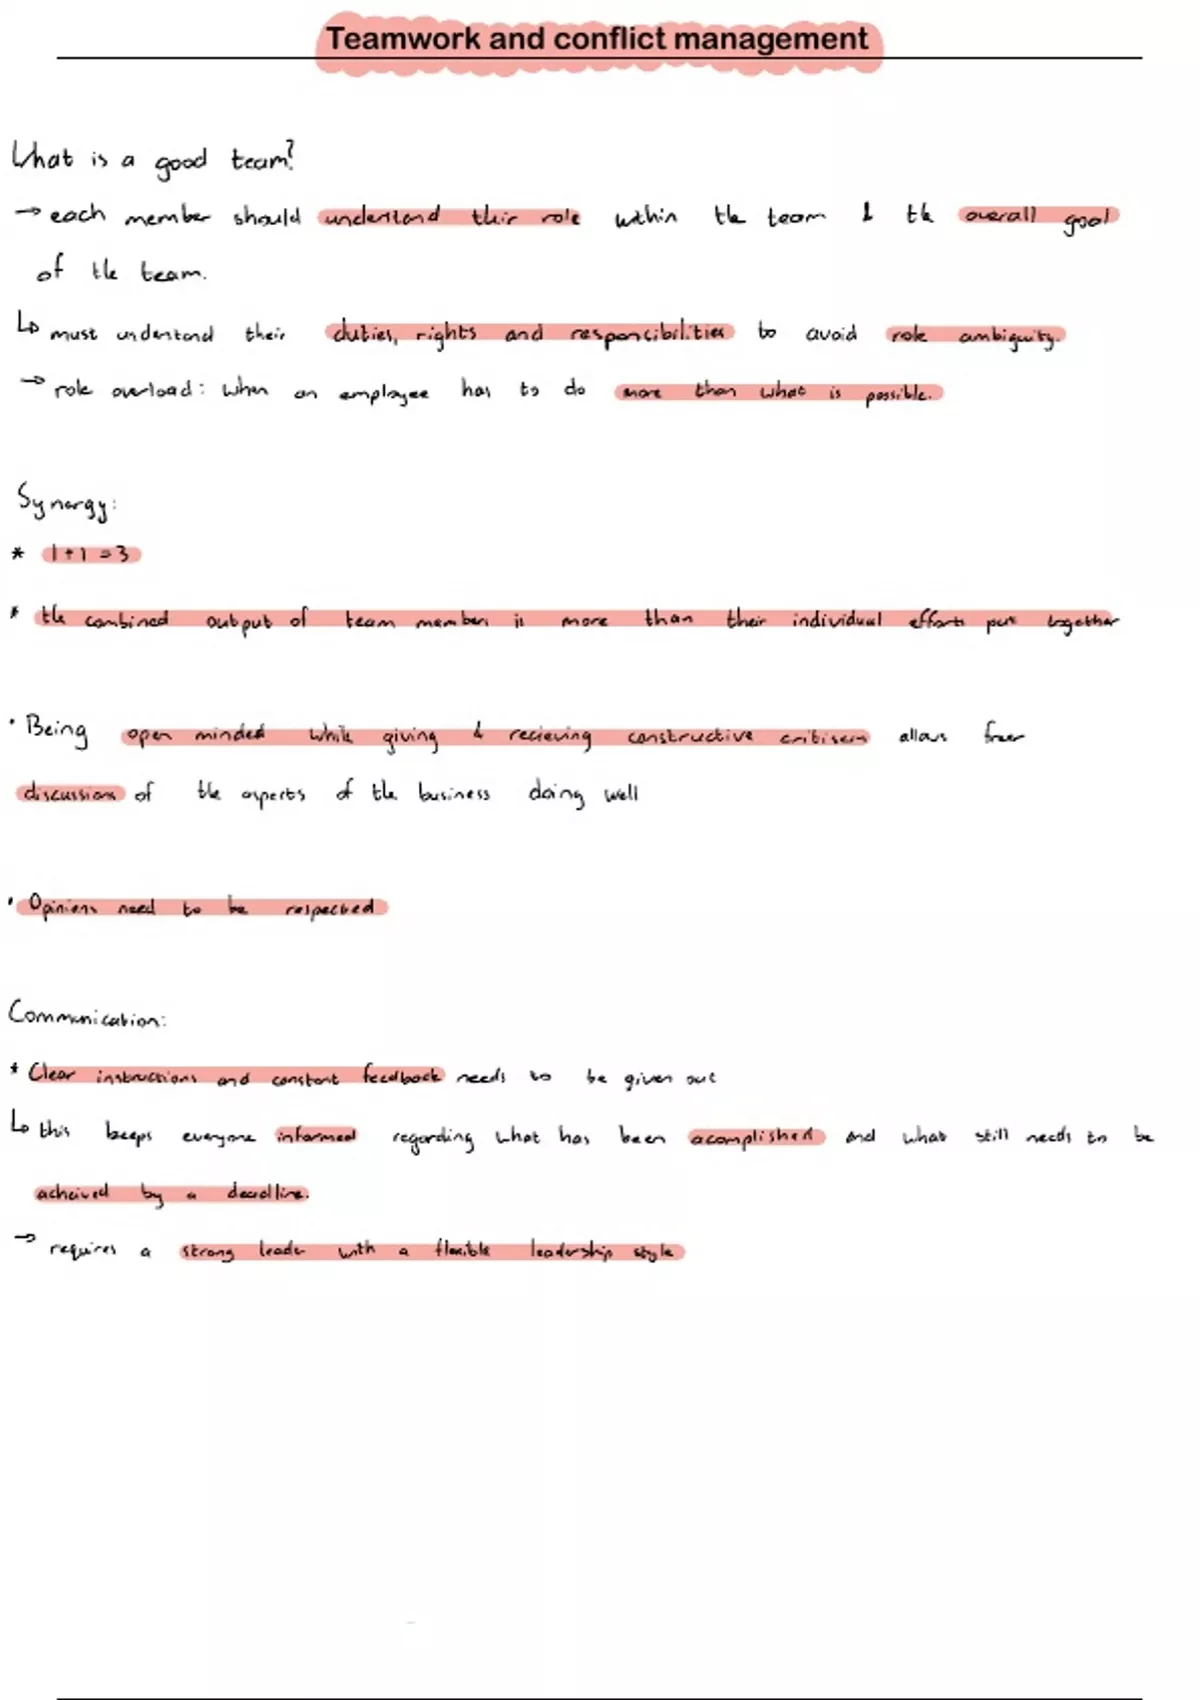 Teamwork and conflict management
What is a good team?
→ each member should understand their role within the team & the overall goal
of the team.
↳ must understand their duties, rights and responcibilities to avoid role ambiguity.
→ role overload: when an employee has to do more than what is possible.
Synergy:
* 1+1=3
* the combined output of team members is more than their individual efforts put together
• Being open minded while giving & recieving constructive critisem allows freer
discussions of the aspects of the business doing well
• Opinions need to be respected
Communication:
* Clear instructions and constant feedback needs to be given out
↳ this keeps everyone informed regarding what has been acomplished and what still needs to be
acheived by a deadline.
→ requires a strong leader with a flexible leadership style